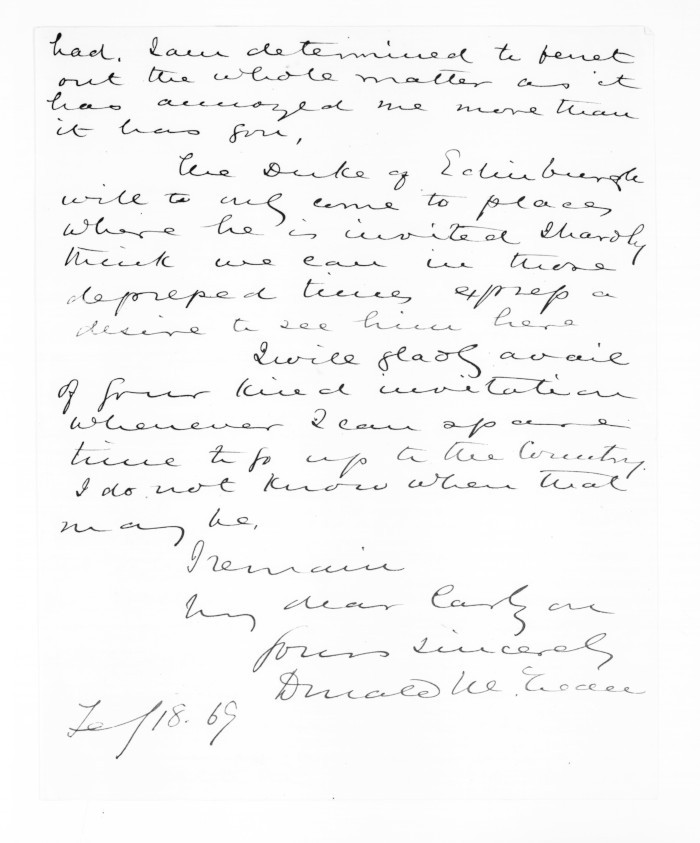 had. I am determined to ferret
out the whole matter as it
has annoyed me more than
it has you,
The Duke of Edinburgh
will to only come to places
where he is invited I hardly
think we can in those
depressed times express a
desire to see him here
I will gladly avail
of your kind invitation
whenever I can spare
time to go up to the Country.
I do not know when that
may be.
I remain
My dear Carlyon
Yours sincerely
Donald McLean
18. 69